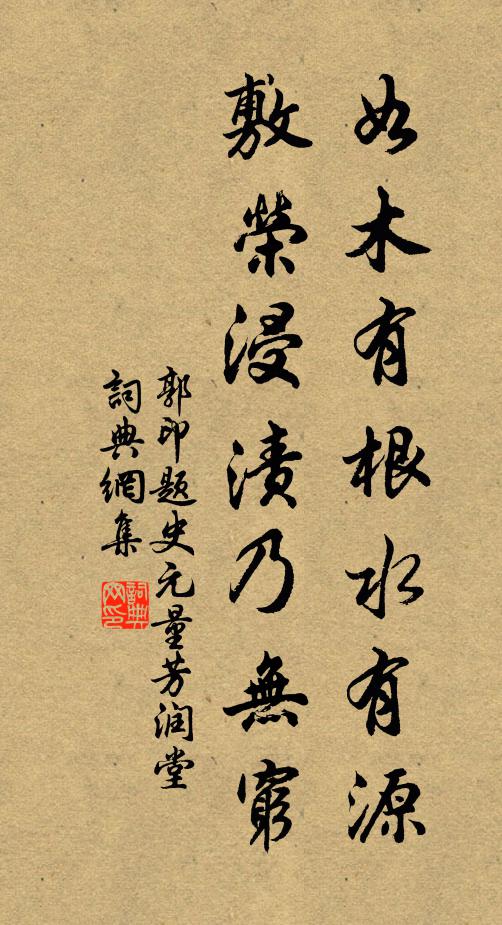 如木有根水有源
敷榮浸漬乃無窮
郭印題史元量芳润堂
詞典網集
詞典網印